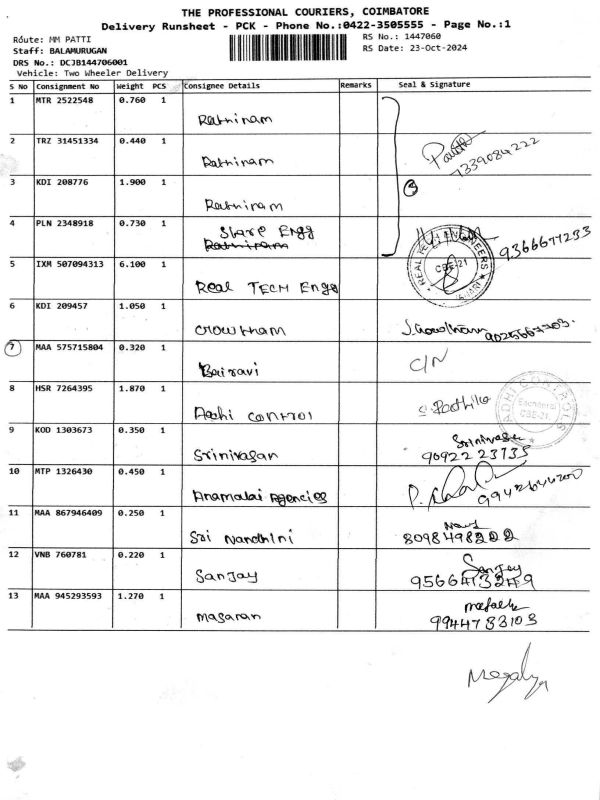 THE PROFESSIONAL COURIERS, COIMBATORE
Delivery Runsheet - PCK - Phone No.:0422-3505555 - Page No.:1
Route: MM PATTI
RS No.: 1447060
Staff: BALAMURUGAN
RS Date: 23-Oct-2024
DRS No.: DCJB144706001
Vehicle: Two Wheeler Delivery
S No Consignment No Weight PCS Consignee Details Remarks Seal & Signature
1 MTR 2522548 0.760 1 Rathinam
2 TRZ 31451334 0.440 1 Rathinam
7339084222
3 KDI 208776 1.900 1 Rathinam
4 PLN 2348918 0.730 1 Stare Engg
Rathinam
9366677233
5 IXM 507094313 6.100 1 Real TECH Engg
CBE-21
6 KDI 209457 1.050 1 Crowtham
7 MAA 575715804 0.320 1 Bairavi C/N
8 HSR 7264395 1.870 1 Aadhi Control S. Radhika
ADHI CONTROLS
CBE-21
9 KOD 1303673 0.350 1 Srinivasan Srinivasan
90922 23735
10 MTP 1326430 0.450 1 Anamalai Agencies
11 MAA 867946409 0.250 1 Sri Nandhini
8098498222
12 VNB 760781 0.220 1 Sanjay Sanjay
13 MAA 945293593 1.270 1 Masaran
9944783103